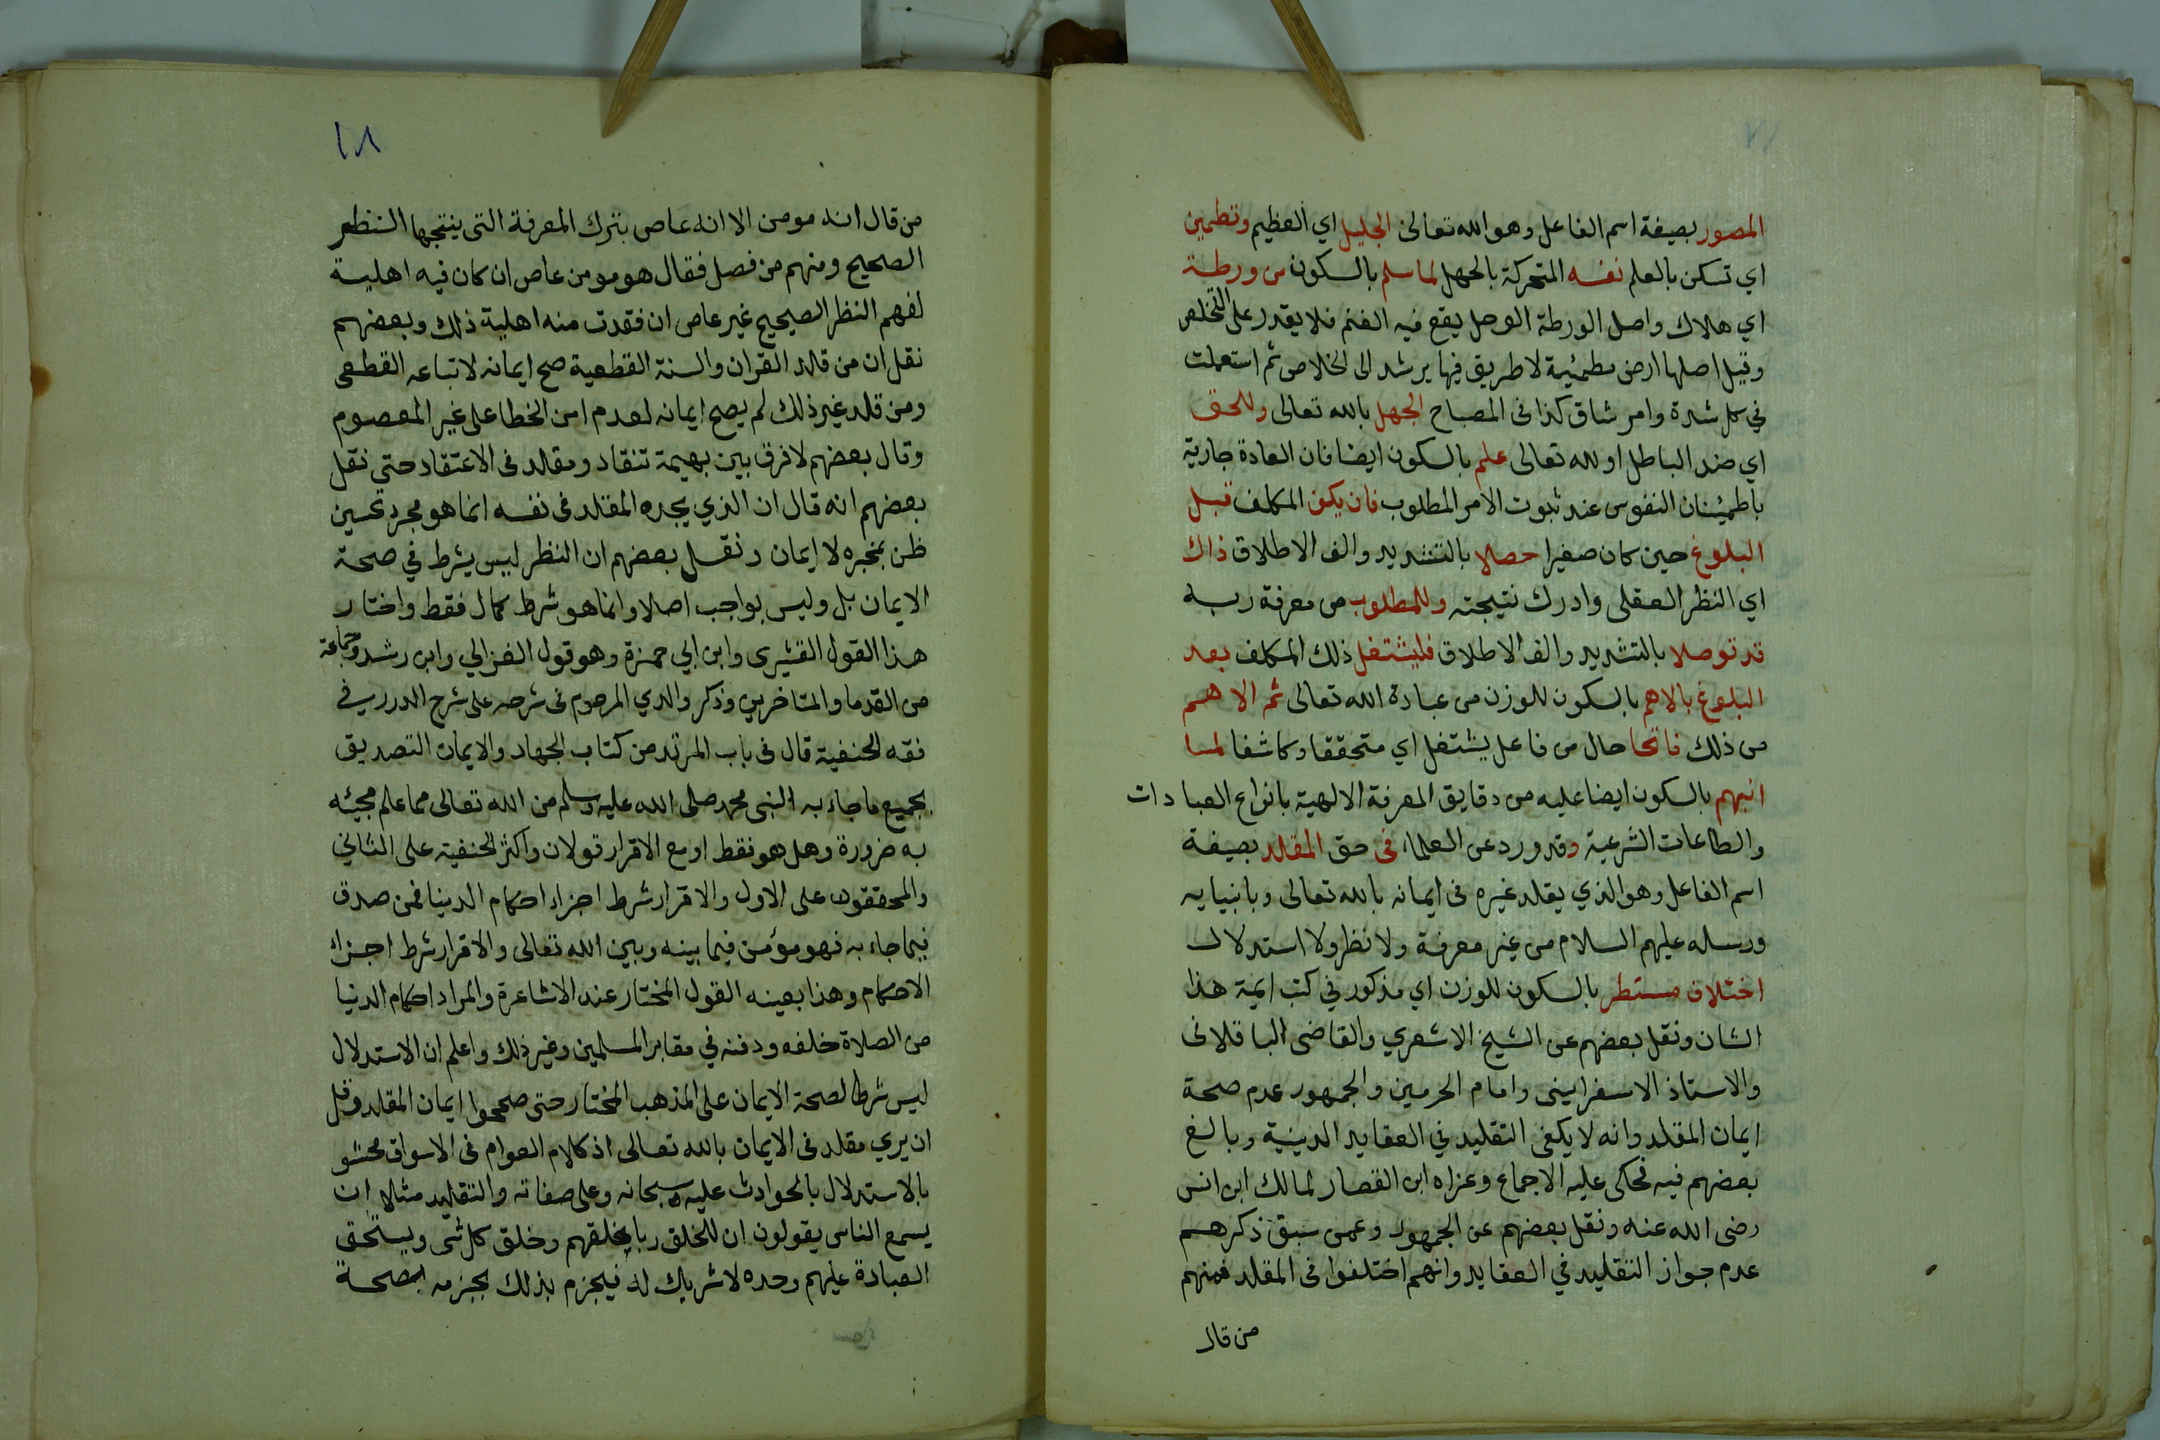 المصور بصيغة اسم الفاعل وهو الله تعالى الجليل اي العظيم وتطمين
اي تسكن بالعلم نفسه المتحركة بالجهل لما سلم بالسكون من ورطة
اي هلاك واصل الورطة الوحل يقع فيه الغنم فلا يقدر على التخلص
وقيل اصلها ارض مطمئنة لا طريق فيها يرشد الى الخلاص ثم استعملت
في كل شدة وامر شاق كذا في المصباح الجهل بالله تعالى وللحق
اي ضد الباطل او لله تعالى علم بالسكون ايضا فان العادة جارية
باطمئنان النفوس عند ثبوت الامر المطلوب فان يكن المكلف قبل
البلوغ حين كان صغيرا حصلا بالتشديد والف الاطلاق ذاك
اي النظر العقلى وادرك نتيجته وللمطلوب من معرفة ربه
قد توصلا بالتشديد والف الاطلاق فليشتغل ذلك المكلف بعد
البلوغ بالاهم بالسكون للوزن من عبادة الله تعالى ثم الاهم
من ذلك فاتحا حال من فاعل يشتغل اي متحققا وكاشفا لما
انبهم بالسكون ايضا عليه من دقايق المعرفة الالهية بانواع العبادات
والطاعات الشرعية وقد ورد عن العلماء في حق المقلد بصيغة
اسم الفاعل وهو الذي يقلد غيره في ايمانه بالله تعالى وبانبيايه
ورسله عليهم السلام من غير معرفة ولا نظر ولا استدلال
اختلاف مستطر بالسكون للوزن اي مذكور في كتب ايمة هذا
الشان ونقل بعضهم عن الشيخ الاشعري والقاضى الباقلانى
والاستاذ الاسفراينى وامام الحرمين والجمهور عدم صحة
ايمان المقلد وانه لا يكفى التقليد في العقايد الدينية وبالغ
بعضهم فيه فحكى عليه الاجماع وعزاه ابن القصار لمالك ابن انس
رضى الله عنه ونقل بعضهم عن الجمهور وعمن سبق ذكرهم
عدم جواز التقليد في العقايد وانهم اختلفوا في المقلد فمنهم
من قال
١٨
من قال انه مومن الا انه عاص بترك المعرفة التى ينتجها النظر
الصحيح ومنهم من فصل فقال هو مومن عاص ان كان فيه اهلية
لفهم النظر الصحيح غير عاص ان فقدت منه اهلية ذلك وبعضهم
نقل ان من قلد القران والسنة القطعية صح ايمانه لاتباعه القطعى
ومن قلد غير ذلك لم يصح ايمانه لعدم امن الخطا على غير المعصوم
وقال بعضهم لا فرق بين بهيمة تنقاد ومقلد في الاعتقاد حتى نقل
بعضهم انه قال ان الذي يجده المقلد في نفسه انما هو مجرد تحسين
ظن بمخبره لا ايمان ونقل بعضهم ان النظر ليس بشرط في صحة
الايمان بل وليس بواجب اصلا وانما هو شرط كمال فقط واختار
هذا القول القشيرى وابن ابي حمزة وهو قول الغزالي وابن رشد وجماعة
من القدما والمتاخرين وذكر والدي المرحوم في شرحه على شرح الدرر في
فقه الحنفية قال في باب المرتد من كتاب الجهاد والايمان التصديق
بجميع ما جاء به النبى محمد صلى الله عليه وسلم من الله تعالى مما علم مجيئه
به ضرورة وهل هو فقط او مع الاقرار قولان واكثر الحنفية على الثاني
والمحققون على الاول والاقرار شرط اجراء احكام الدنيا فمن صدق
فيما جاء به فهو مؤمن فيما بينه وبين الله تعالى والاقرار شرط اجراء
الاحكام وهذا بعينه القول المختار عند الاشاعرة والمراد احكام الدنيا
من الصلاة خلفه ودفنه في مقابر المسلمين وغير ذلك واعلم ان الاستدلال
ليس شرطا لصحة الايمان على المذهب المختار حتى صححوا ايمان المقلد وقل
ان يري مقلد في الايمان بالله تعالى اذ كلام العوام في الاسواق محشو
بالاستدلال بالحوادث عليه سبحانه وعلى صفاته والتقليد مثلا ان
يسمع الناس يقولون ان للخلق ربا يخلقهم وخلق كل شى ويستحق
العبادة عليهم وحده لا شريك له فيجزم بذلك بجزمه بصحة